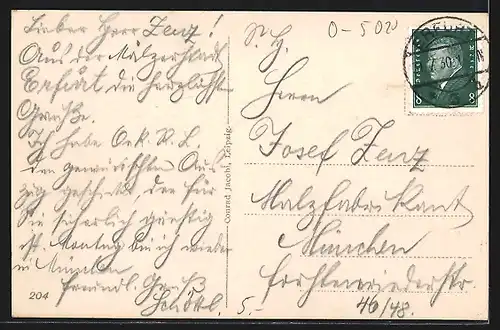 Lieber Herr Zenz!
Aus der Mälzerstadt
Erfurt die herzlichsten
Grüße.
Ich habe Oek. R. L.
den gewünschten Aus
zug geschickt, der für
Sie sicherlich günstig
ist. Montag bin ich wieder
in München
freundl. Gruß
204
Conrad Jacobi, Leipzig.
0-5020
S. H.
Herrn
Josef Zenz
Malzfabrikant
München
46/48.
5.-
ERFURT
DEUTSCHES REICH
8 8